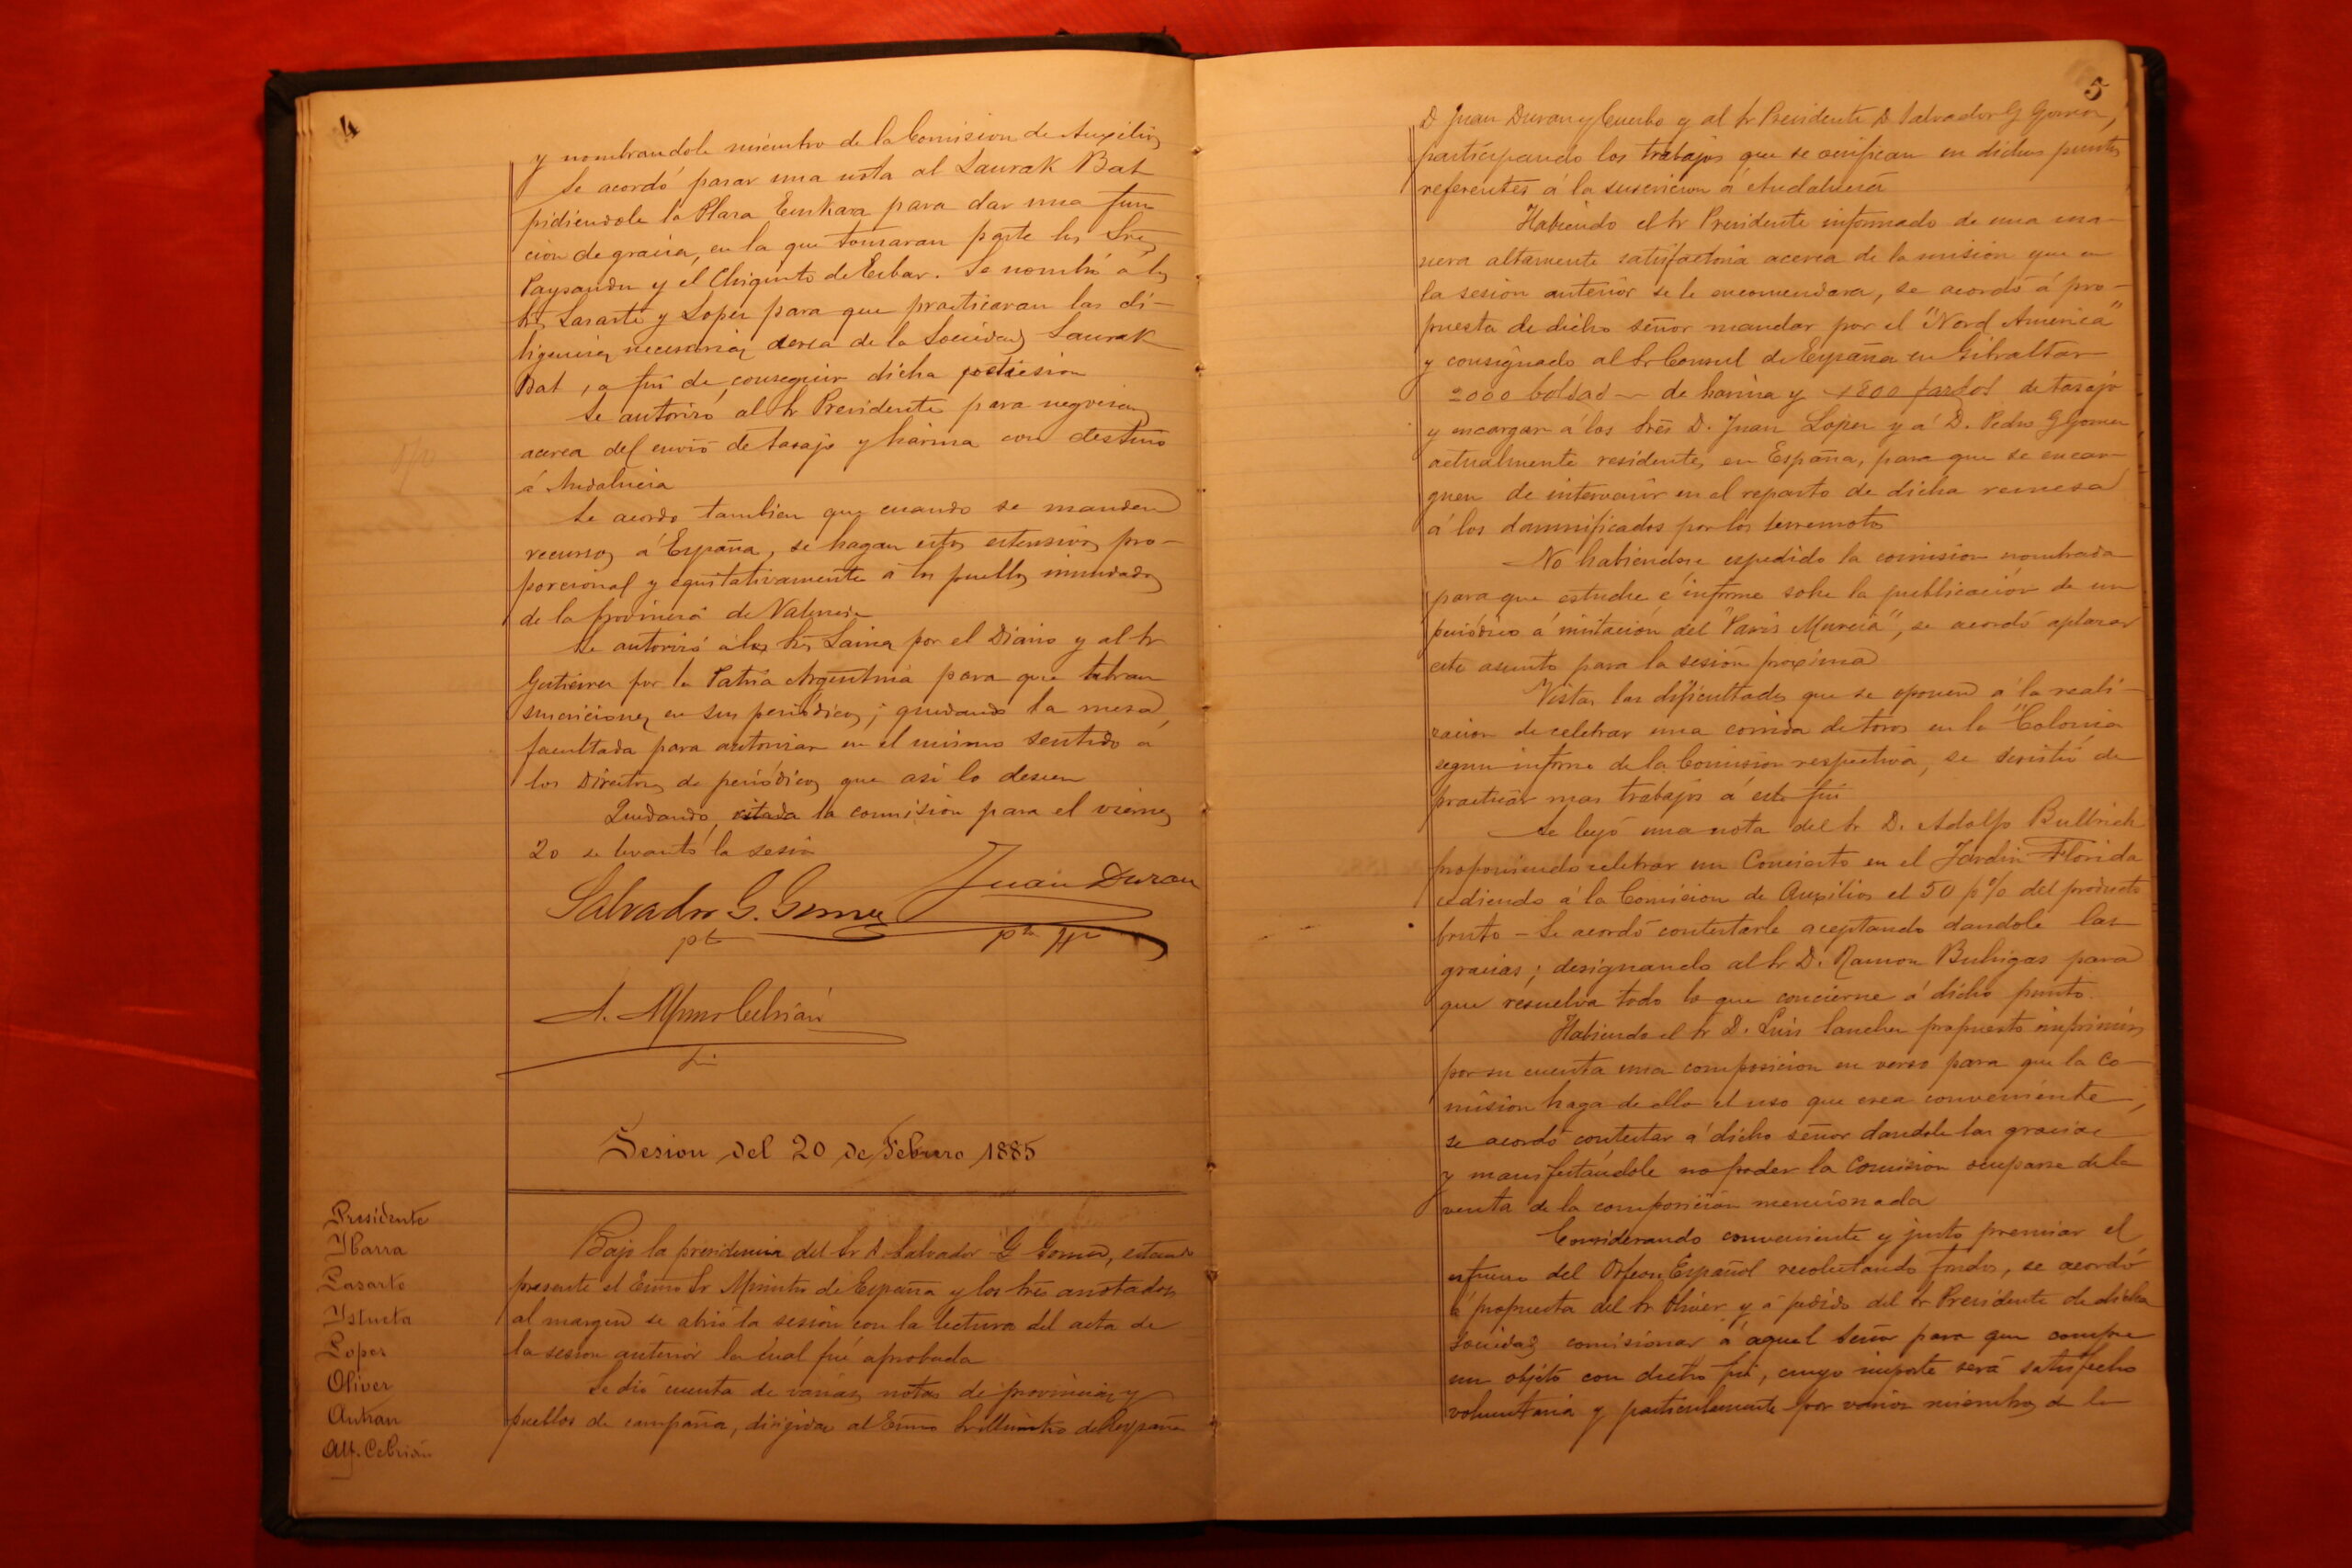 4
y nombrandole miembro de la Comision de Auxilios
Se acordó pasar una nota al Laurak Bat
pidiendole la Plaza Euskara para dar una fun
cion de gracia, en la que tomaran parte los Sres
Paysandu y el Chiquito de Eibar. Se nombró a los
Sres Lasarte y Lopez para que practicaran las di-
ligencias necesarias cerca de la Sociedad Laurak
Bat, a fin de conseguir dicha
Se autorizó al Sr Presidente para negociar
acerca del envio de tasajo y harina con destino
á Andalucia
Se acordo tambien que cuando se manden
recursos á España, se hagan estos estensivos pro-
porcional y equitativamente a los pueblos inundados
de la provincia de Valencia
Se autorizó a los Sres Lainez por el Diario y al Sr
Gutierrez por la Patria Argentina para que abran
suscriciones en sus periódicos; quedando la mesa
facultada para autorizar en el mismo sentido a
los Directores de periódicos que asi lo deseen
Quedando citada la comision para el viernes
20 se levantó la sesion
Juan Duran
Salvador G. Gomez
pte
pte Hº
A. Alfonso Cebrián
Sesion del 20 de Febrero 1885
Presidente
Ibarra
Lasarte
Istueta
Lopez
Oliver
Autran
Alf. Cebrián
Bajo la presidencia del Sr D Salvador G Gomez, estando
presente el Exmo Sr Ministro de España y los Sres anotados
al margen se abrió la sesion con la lectura del acta de
la sesion anterior la cual fué aprobada
Se dió cuenta de varias notas de provincias y
pueblos de campaña, dirigidas al Exmo Sr Ministro de España
5
D Juan Duran y Cuerbo y al Sr Presidente D Salvador G Gomez,
participando los trabajos que se verifican en dichos puntos
referentes á la suscricion á Andalucia
Habiendo el Sr Presidente informado de una ma-
nera altamente satisfactoria acerca de la mision que en
la sesion anterior se le encomendara, se acordó á pro-
puesta de dicho señor mandar por el "Nord America"
y consignado al Sr Consul de España en Gibraltar
2000 bolsas de harina y 1800 fardos de tasajo
y encargar á los Sres D. Juan Lopez y á D. Pedro G Gomez
actualmente residentes en España, para que se encar-
guen de intervenir en el reparto de dicha remesa
á los damnificados por los terremotos
No habiendose espedido la comision nombrada
para que estudie é informe sobre la publicacion de un
periódico a imitacion del "Paris Murcia", se acordó aplazar
este asunto para la sesión proxima
Vistas las dificultades que se oponen a la reali-
zacion de celebrar una corrida de toros en la "Colonia
segun informe de la Comision respectiva, se desistió de
practicar mas trabajos a este fin
Se leyó una nota del Sr D. Adolfo Bullrich
proponiendo celebrar un Concierto en el Jardin Florida
cediendo á la Comision de Auxilios el 50 p% del producto
bruto - Se acordó contestarle aceptando dandole las
gracias; designando al Sr D. Ramon Buhigas para
que resuelva todo lo que concierne á dicho punto.
Habiendo el Sr D. Luis propuesto imprimir
por su cuenta una composicion en verso para que la Co-
mision haga de ella el uso que crea conveniente,
se acordó contestar a dicho señor dandole las gracias
y manifestandole no poder la Comision ocuparse de la
venta de la composicion mencionada
Considerando conveniente y justo premiar el
esfuerzo del Orfeon Español recolectando fondos, se acordó
á propuesta del Sr Oliver y á pedido del Sr Presidente de dicha
Sociedad comisionar a aquel Señor para que compre
un objeto con dicho fin, cuyo importe será satisfecho
voluntaria y particularmente por varios miembros de la